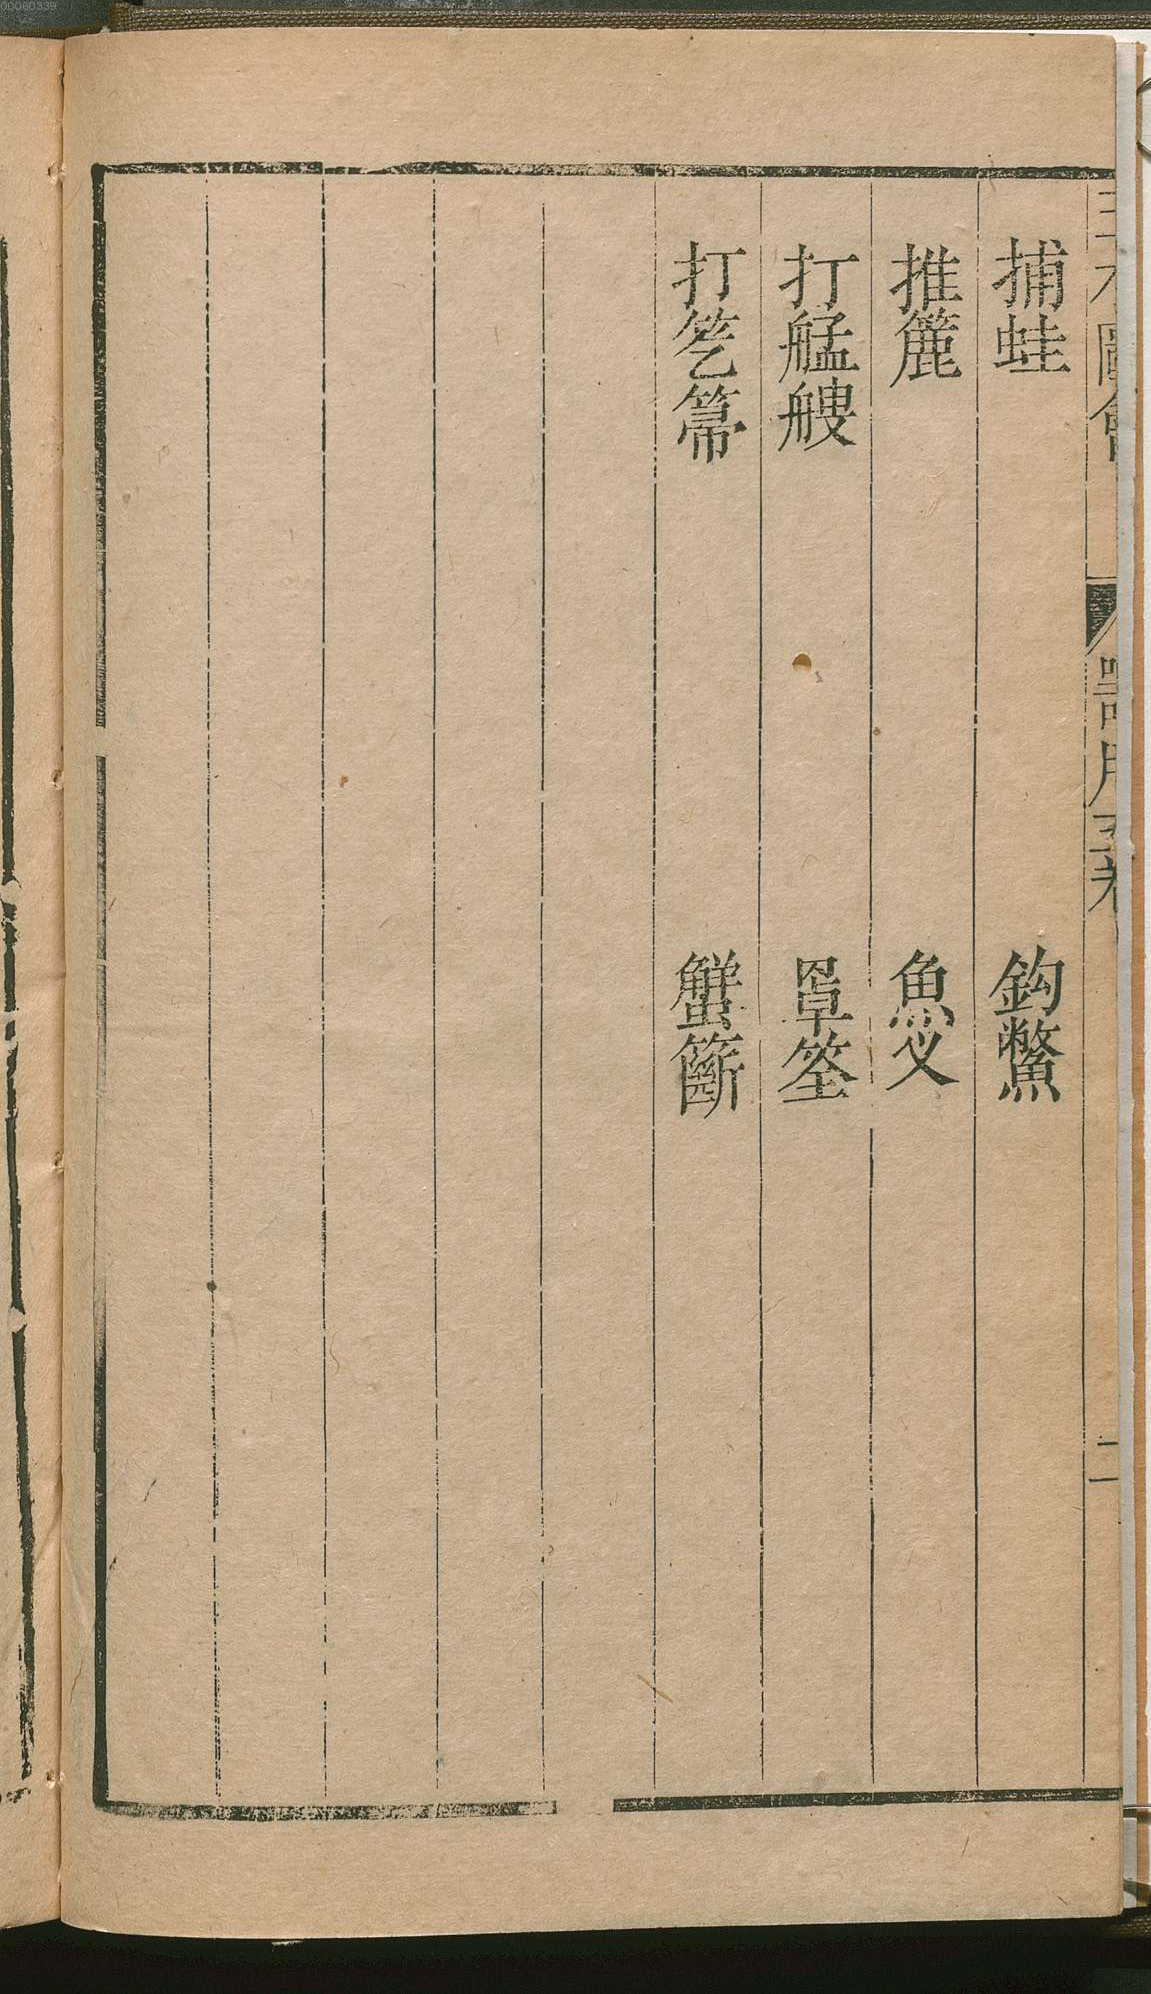 00060339
三才圖會 器用五卷 二
捕蛙 鈎鱉
推簏 魚叉
打艋艘 罩筌
打䇄箒 蟹籪